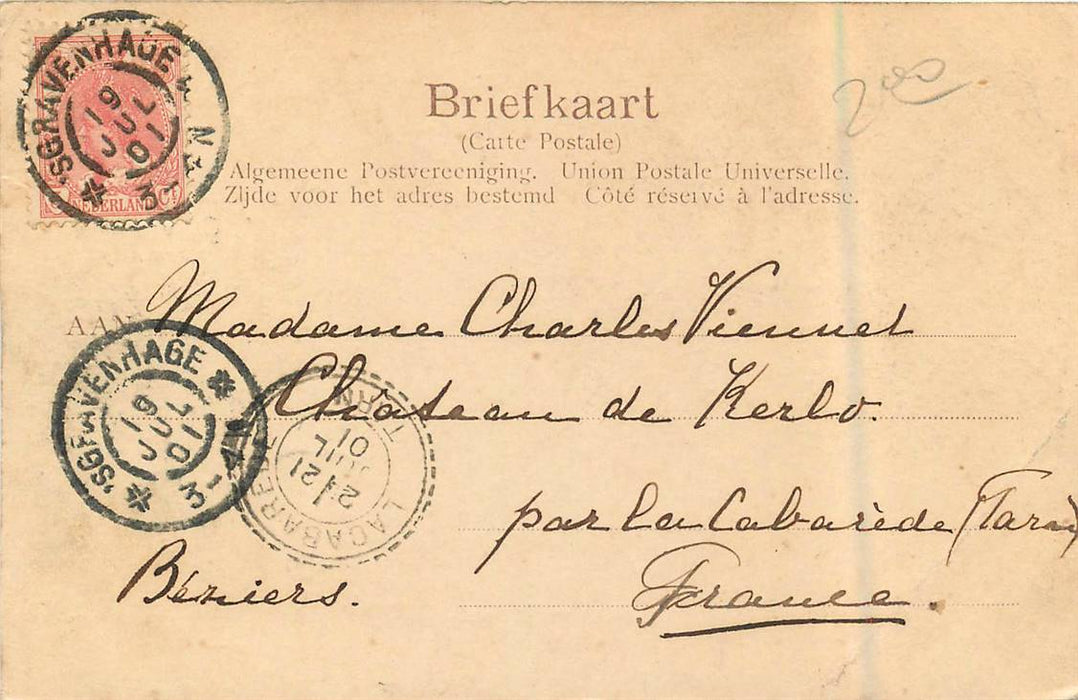 'SGRAVENHAGE
19 JUL 01
NEDERLAND
200
Briefkaart
(Carte Postale)
Algemeene Postvereeniging. Union Postale Universelle.
Zijde voor het adres bestemd Côté réservé à l'adresse.
AAN Madame Charles Viennet
Château de Kerlo.
'SGRAVENHAGE
19 JUL 01
3-4N
LACABARÈDE TARN
21 JUIL 01
par La Cabarède (Tarn)
Béziers.
France.